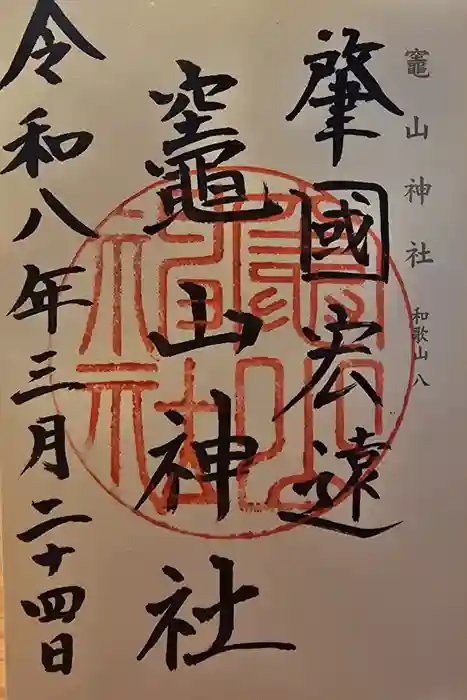 竈山神社 和歌山 八
肇國宏遠
竈山神社
令和八年三月二十四日